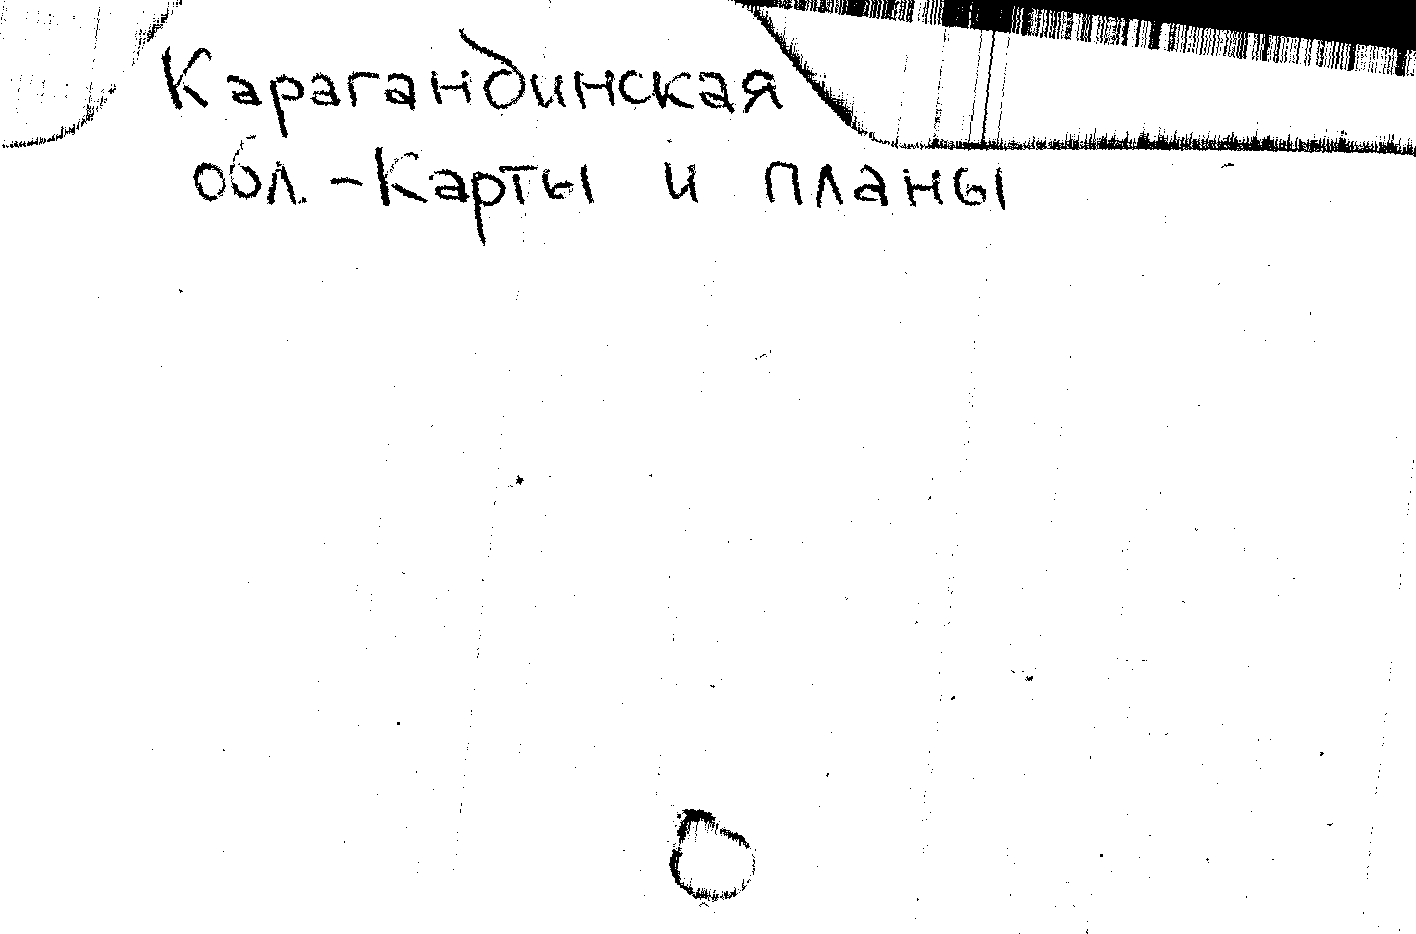 Карагандинская
обл. - Карты и планы